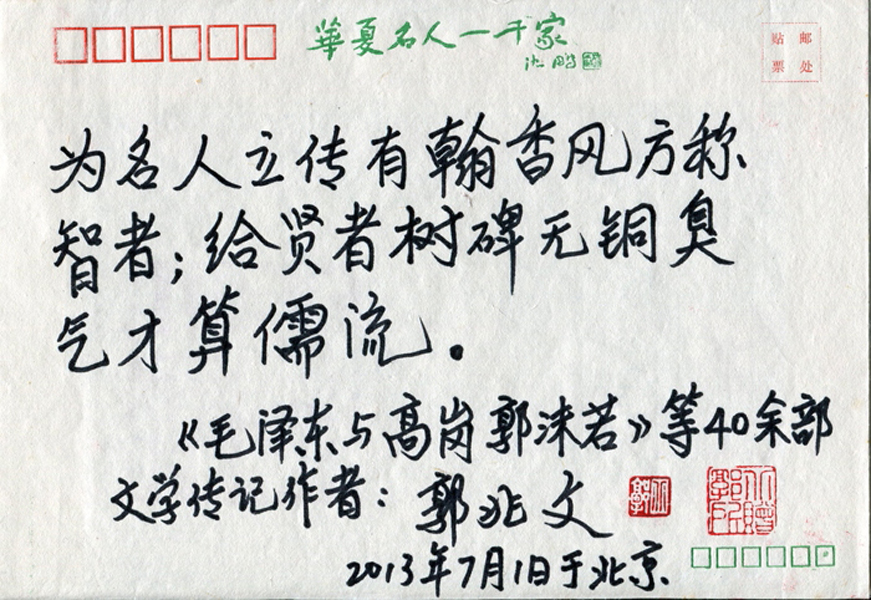 華夏名人一千家
沈鹏
贴 邮
票 处
为名人立传有翰香风方称
智者；给贤者树碑无铜臭
气才算儒流。
《毛泽东与高岗郭沫若》等40余部
文学传记作者：郭兆文
2013年7月1日于北京